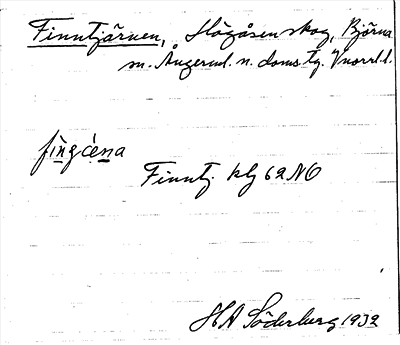 Finntjärnen, Högåsen skog, Björna
m. Ångerml. n. doms. tg. Vnorrl. l.
fìngćɛna
Finntj. klg 62 NO
HA Söderberg 1932